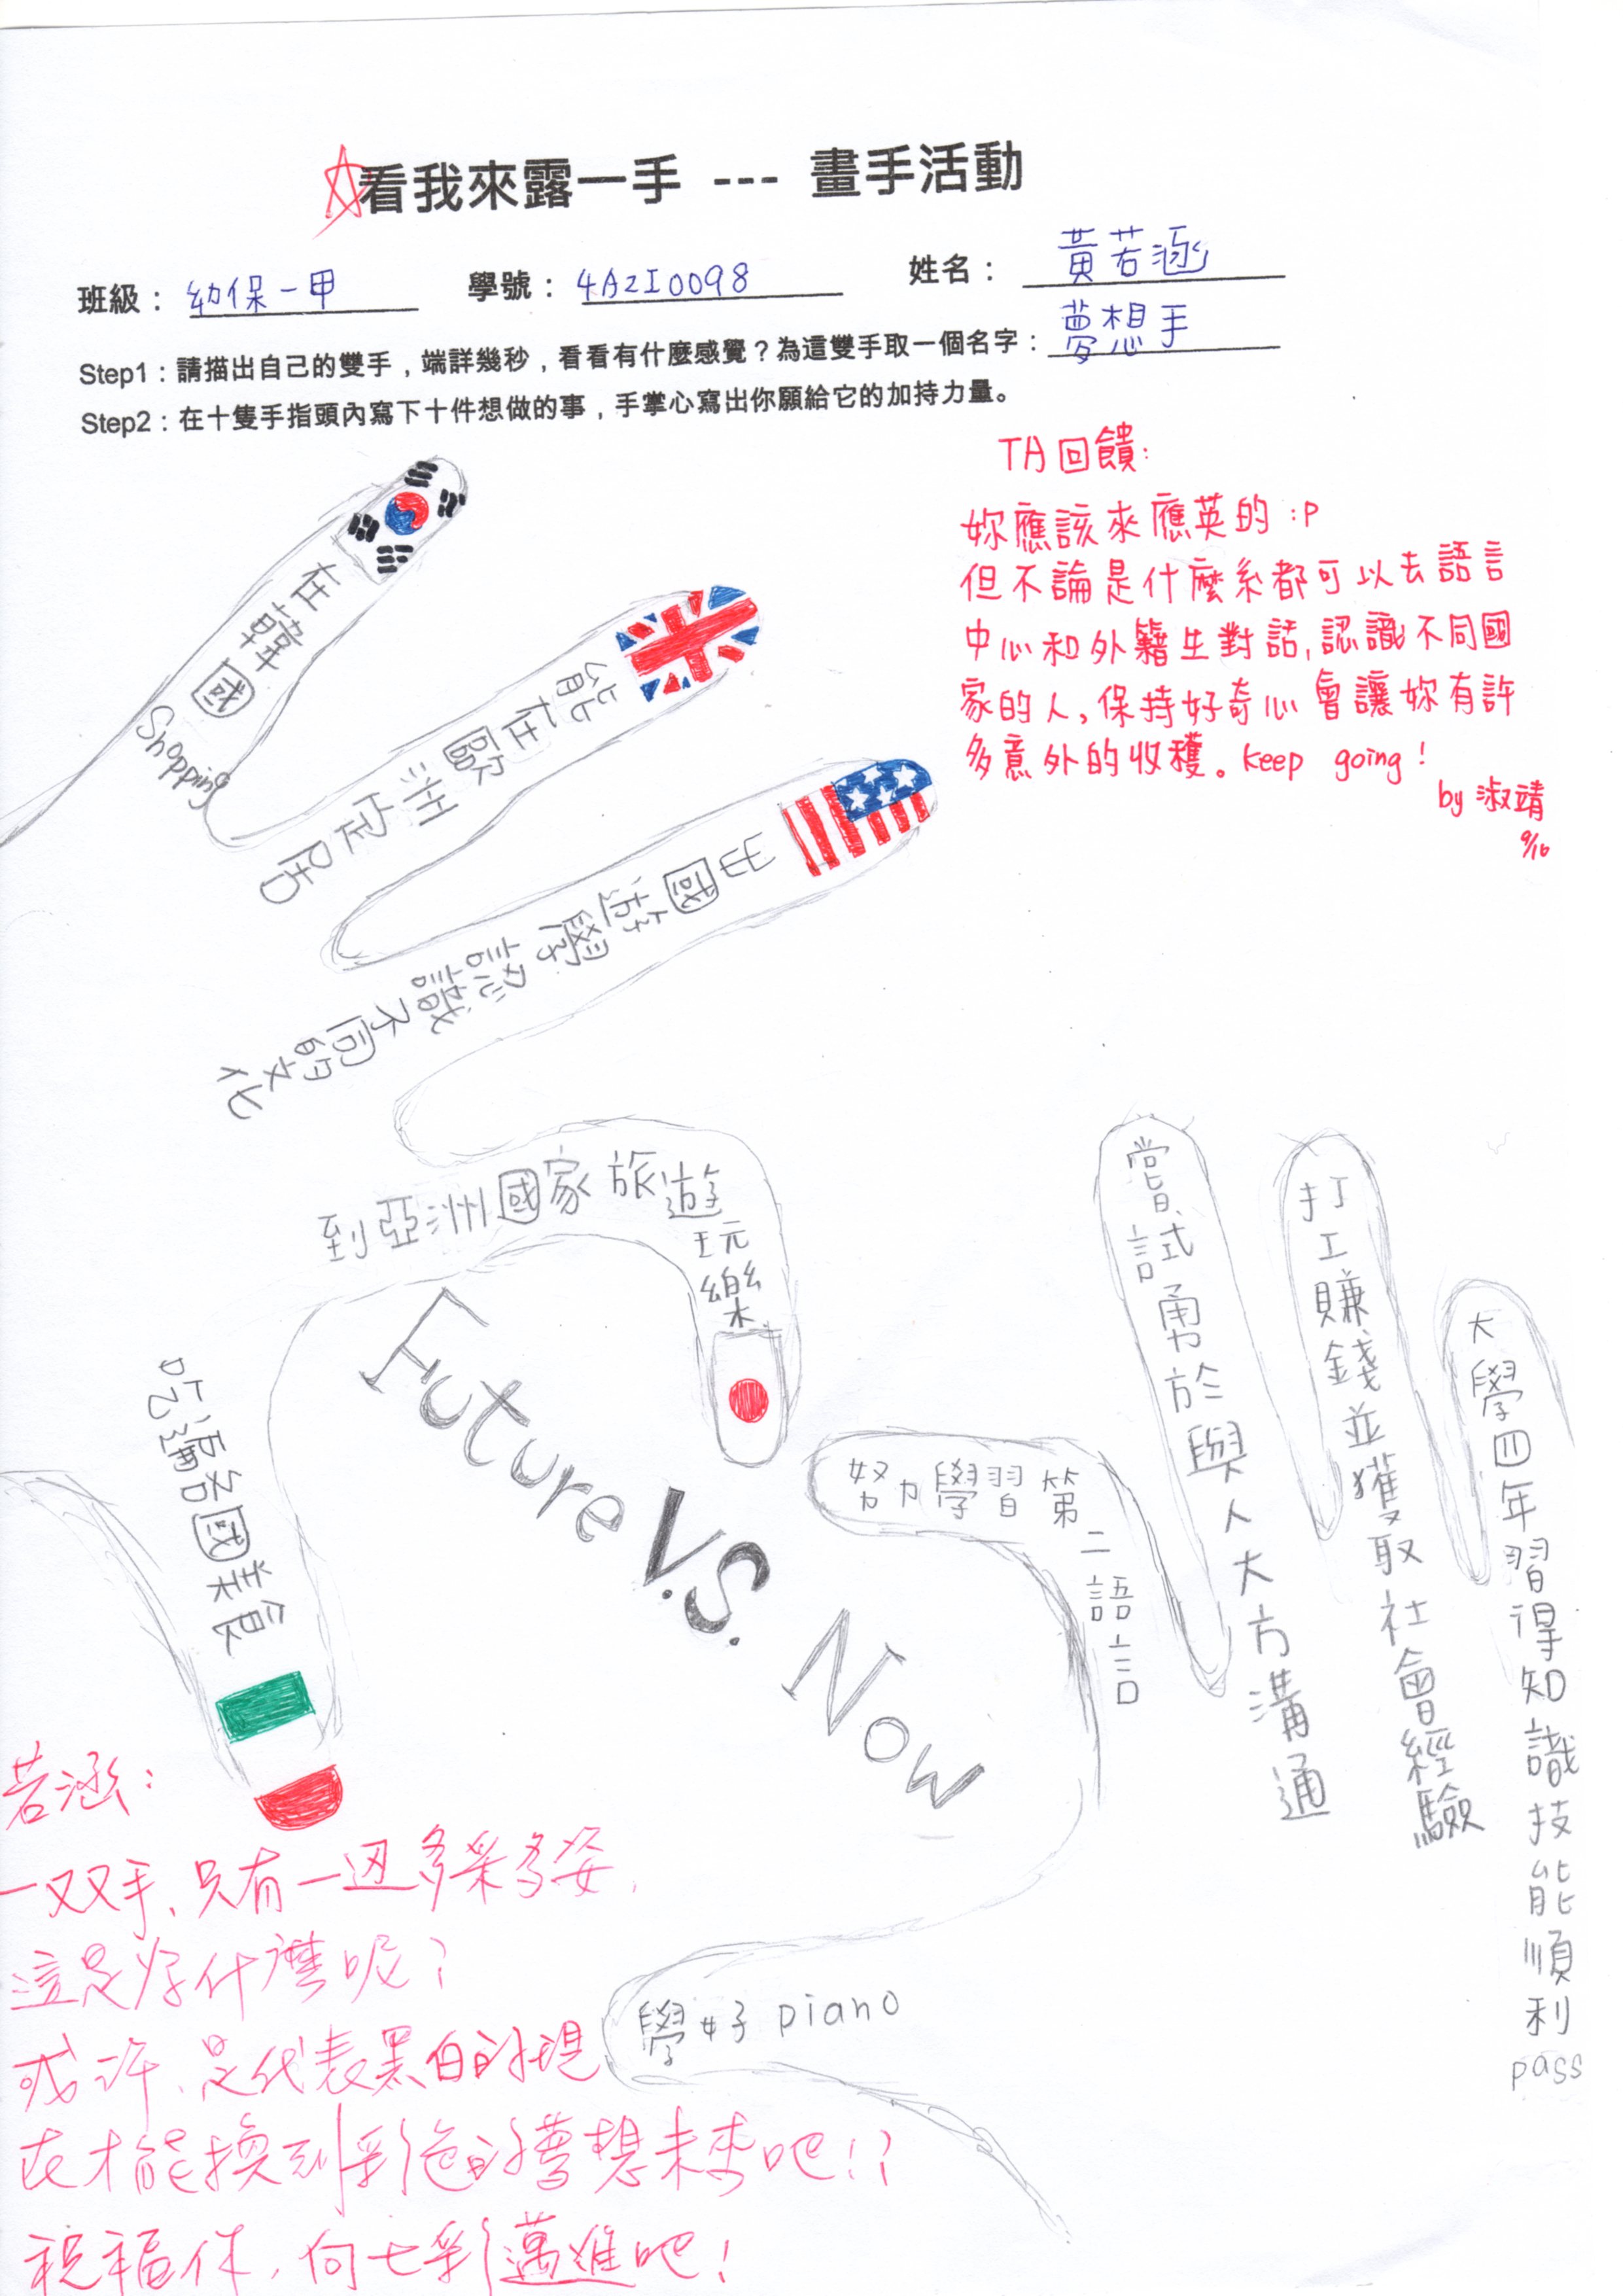 看我來露一手 --- 畫手活動
班級： 幼保一甲 學號： 4A2I0098 姓名： 黃若涵
Step1：請描出自己的雙手，端詳幾秒，看看有什麼感覺？為這雙手取一個名字： 夢想手
Step2：在十隻手指頭內寫下十件想做的事，手掌心寫出你願給它的加持力量。
TA回饋：
妳應該來應英的 :P
但不論是什麼系都可以去語言
中心和外籍生對話,認識不同國
家的人,保持好奇心會讓妳有許
多意外的收穫。Keep going!
by 淑靖
9/16
在韓國
Shopping
能在歐洲定居
出國遊學認識不同的文化
到亞洲國家旅遊玩樂
吃遍各國美食
Future V.S. Now
努力學習第二語言
嘗試勇於與人大方溝通
打工賺錢並獲取社會經驗
大學四年習得知識技能順利pass
學好piano
若涵：
一双双手、只有一边多采多姿,
這是為什麼呢？
或许、是代表黑白的現
在才能換到彩色的夢想未來吧!?
祝福你,向七彩邁進吧!